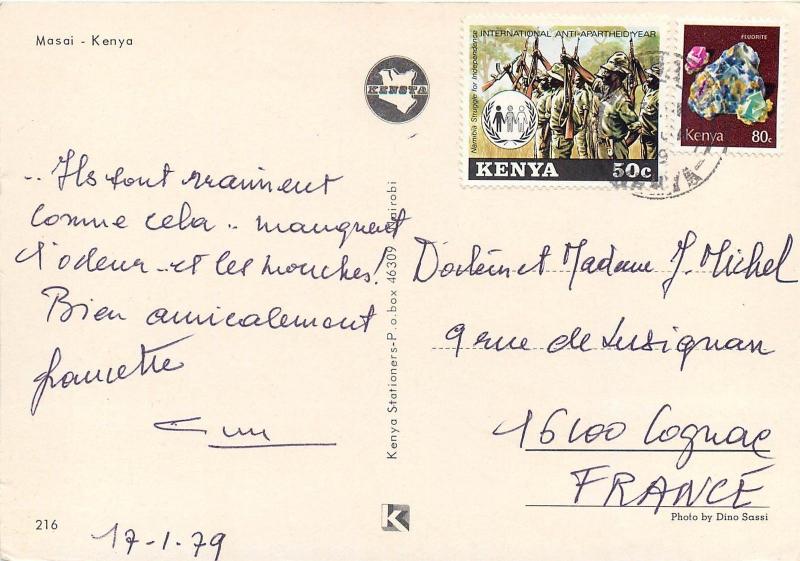 Masai - Kenya
KENSTA
.. Ils sont vraiment
comme cela .. manquent
l'odeur .. et les mouches!
Bien amicalement
francette
216
17-1.79
Kenya Stationers-P.o.box 46309 Nairobi
Namibia Struggle for Independence
INTERNATIONAL ANTI-APARTHEID YEAR
KENYA 50c
FLUORITE
Kenya 80c
Docteur et Madame J. Michel
9 rue de Lusignan
16100 Cognac
FRANCE
K
Photo by Dino Sassi